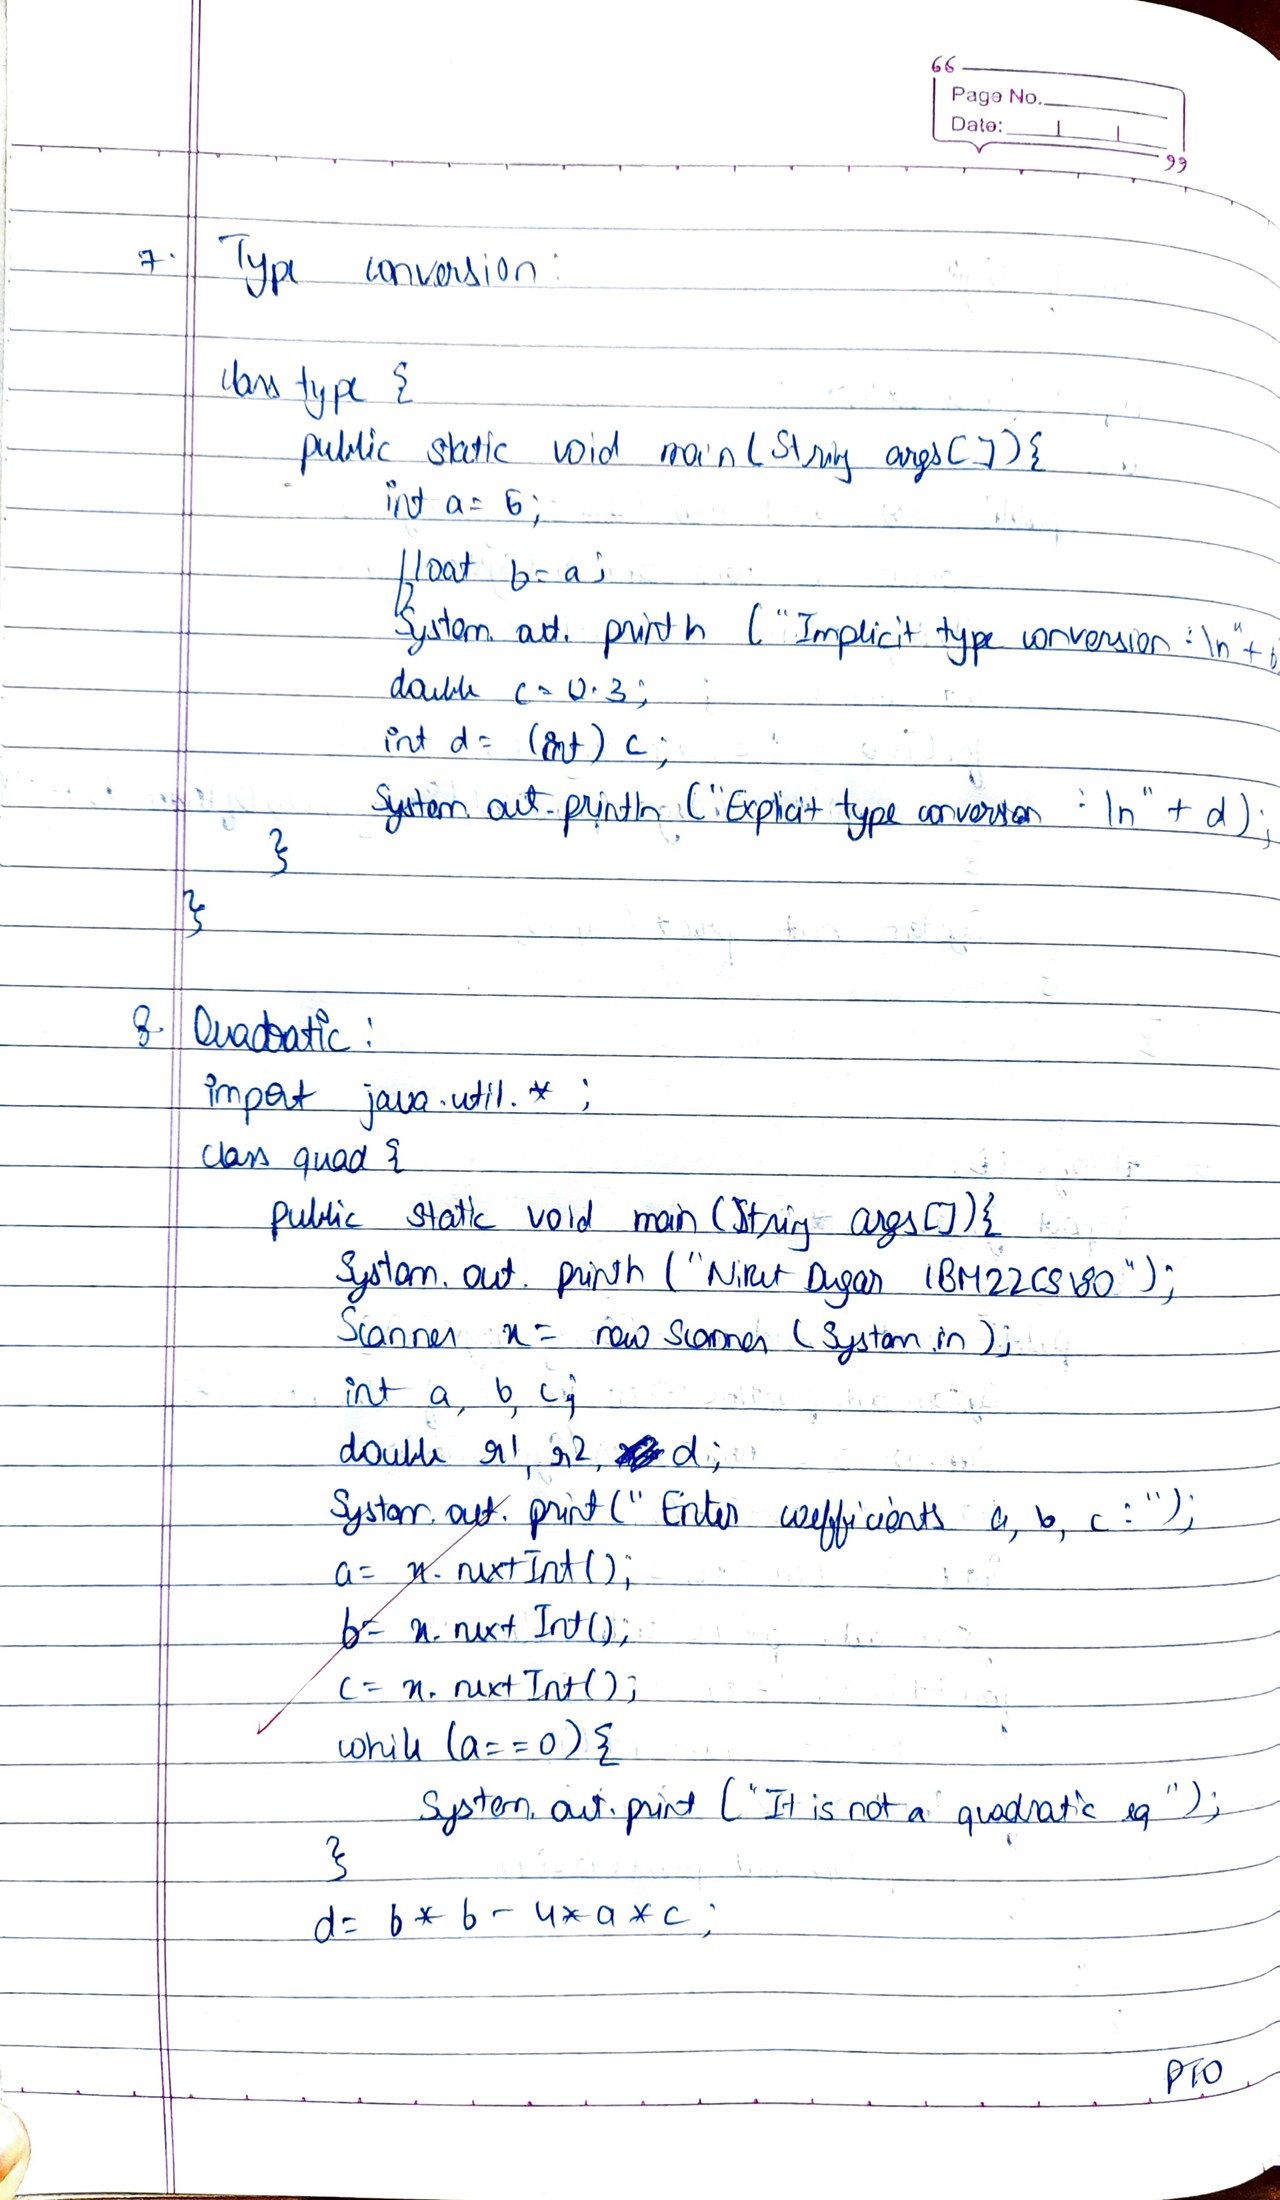 “
Page No.
Date:
”
7. Type conversion:
class type {
public static void main(String args[]){
int a= 5;
float b= a;
System.out.println ("Implicit type conversion :\n"+ b
double c= 0.3;
int d= (int) c;
System.out.println ("Explicit type conversion :\n" + d);
}
}
8. Quadratic:
import java.util.*;
class quad {
public static void main(String args[]){
System.out.println ("Nirut Dugar 1BM22CS180");
Scanner x= new Scanner (System.in);
int a, b, c;
double r1, r2, d;
System.out.print(" Enter coefficients a, b, c :");
a= x.nextInt();
b= x.nextInt();
c= x.nextInt();
while (a==0){
System.out.print ("It is not a quadratic eq");
}
d= b*b-4*a*c;
PTO